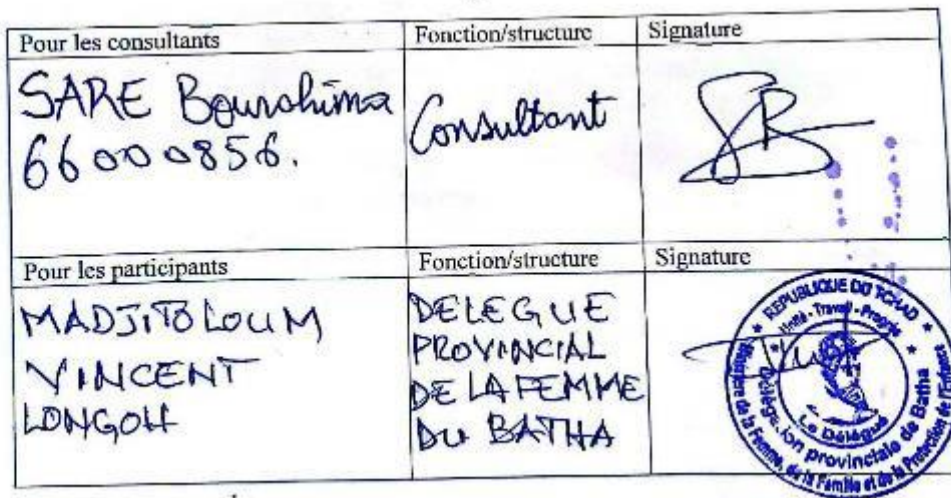 Pour les consultants
Fonction/structure
Signature
SARE Bourahima
66000856.
Consultant
SB
Pour les participants
Fonction/structure
Signature
MADJITOLOUM
VINCENT
LONGOH
DELEGUE
PROVINCIAL
DE LA FEMME
DU BATHA
REPUBLIQUE DU TCHAD
Unité - Travail - Progrès
Ministère de la Femme, de la Famille et de la Protection de
Délégation provinciale de Batha
Le Délégué